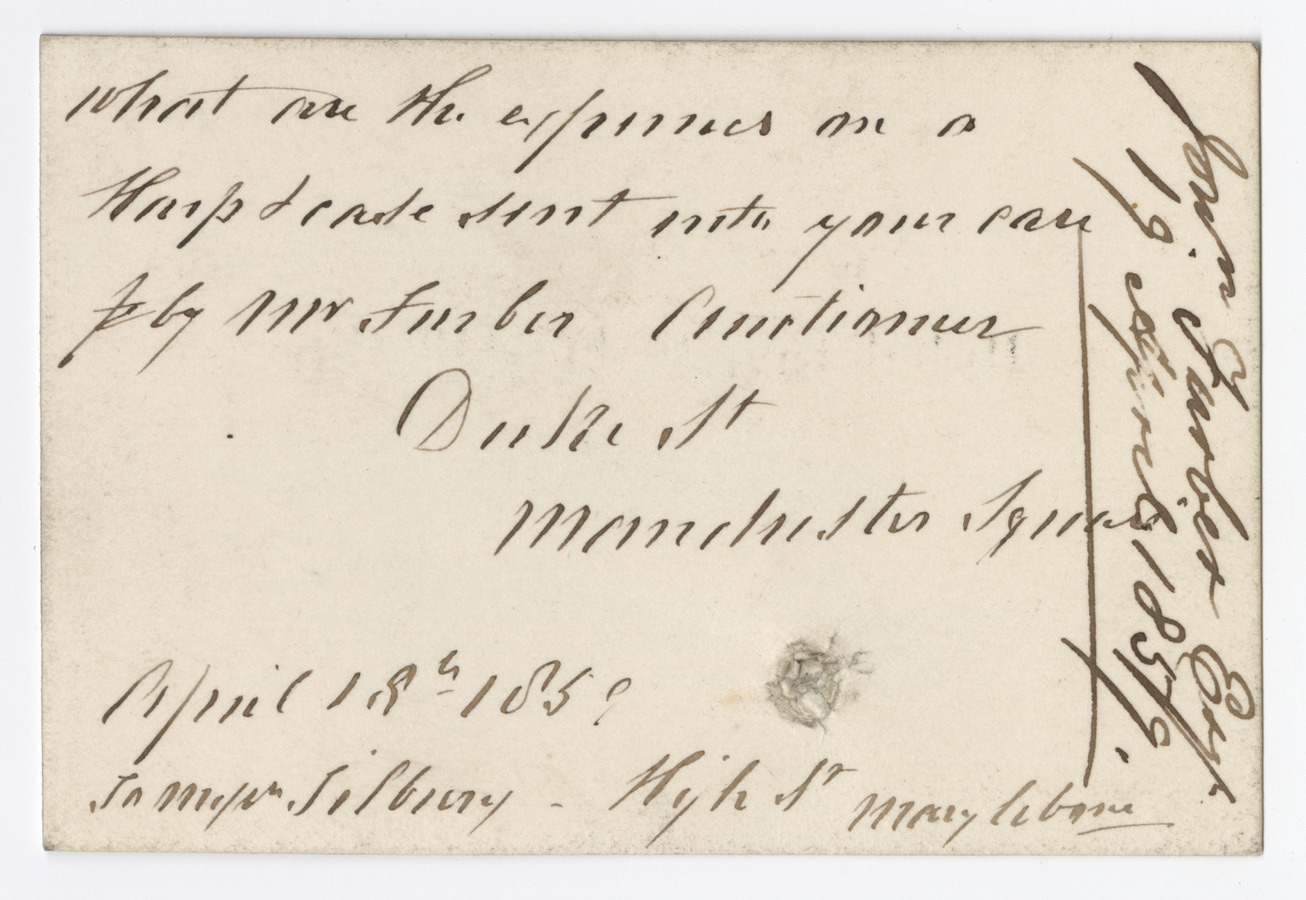 what are the expenses on a
Harp & case sent into your care
by Mr Furber Auctioneer
Duke St
Manchester Square
April 18th 1859
To Messrs Tilbury - High St Marylebone
John Farber Esqr
19 April 1859.